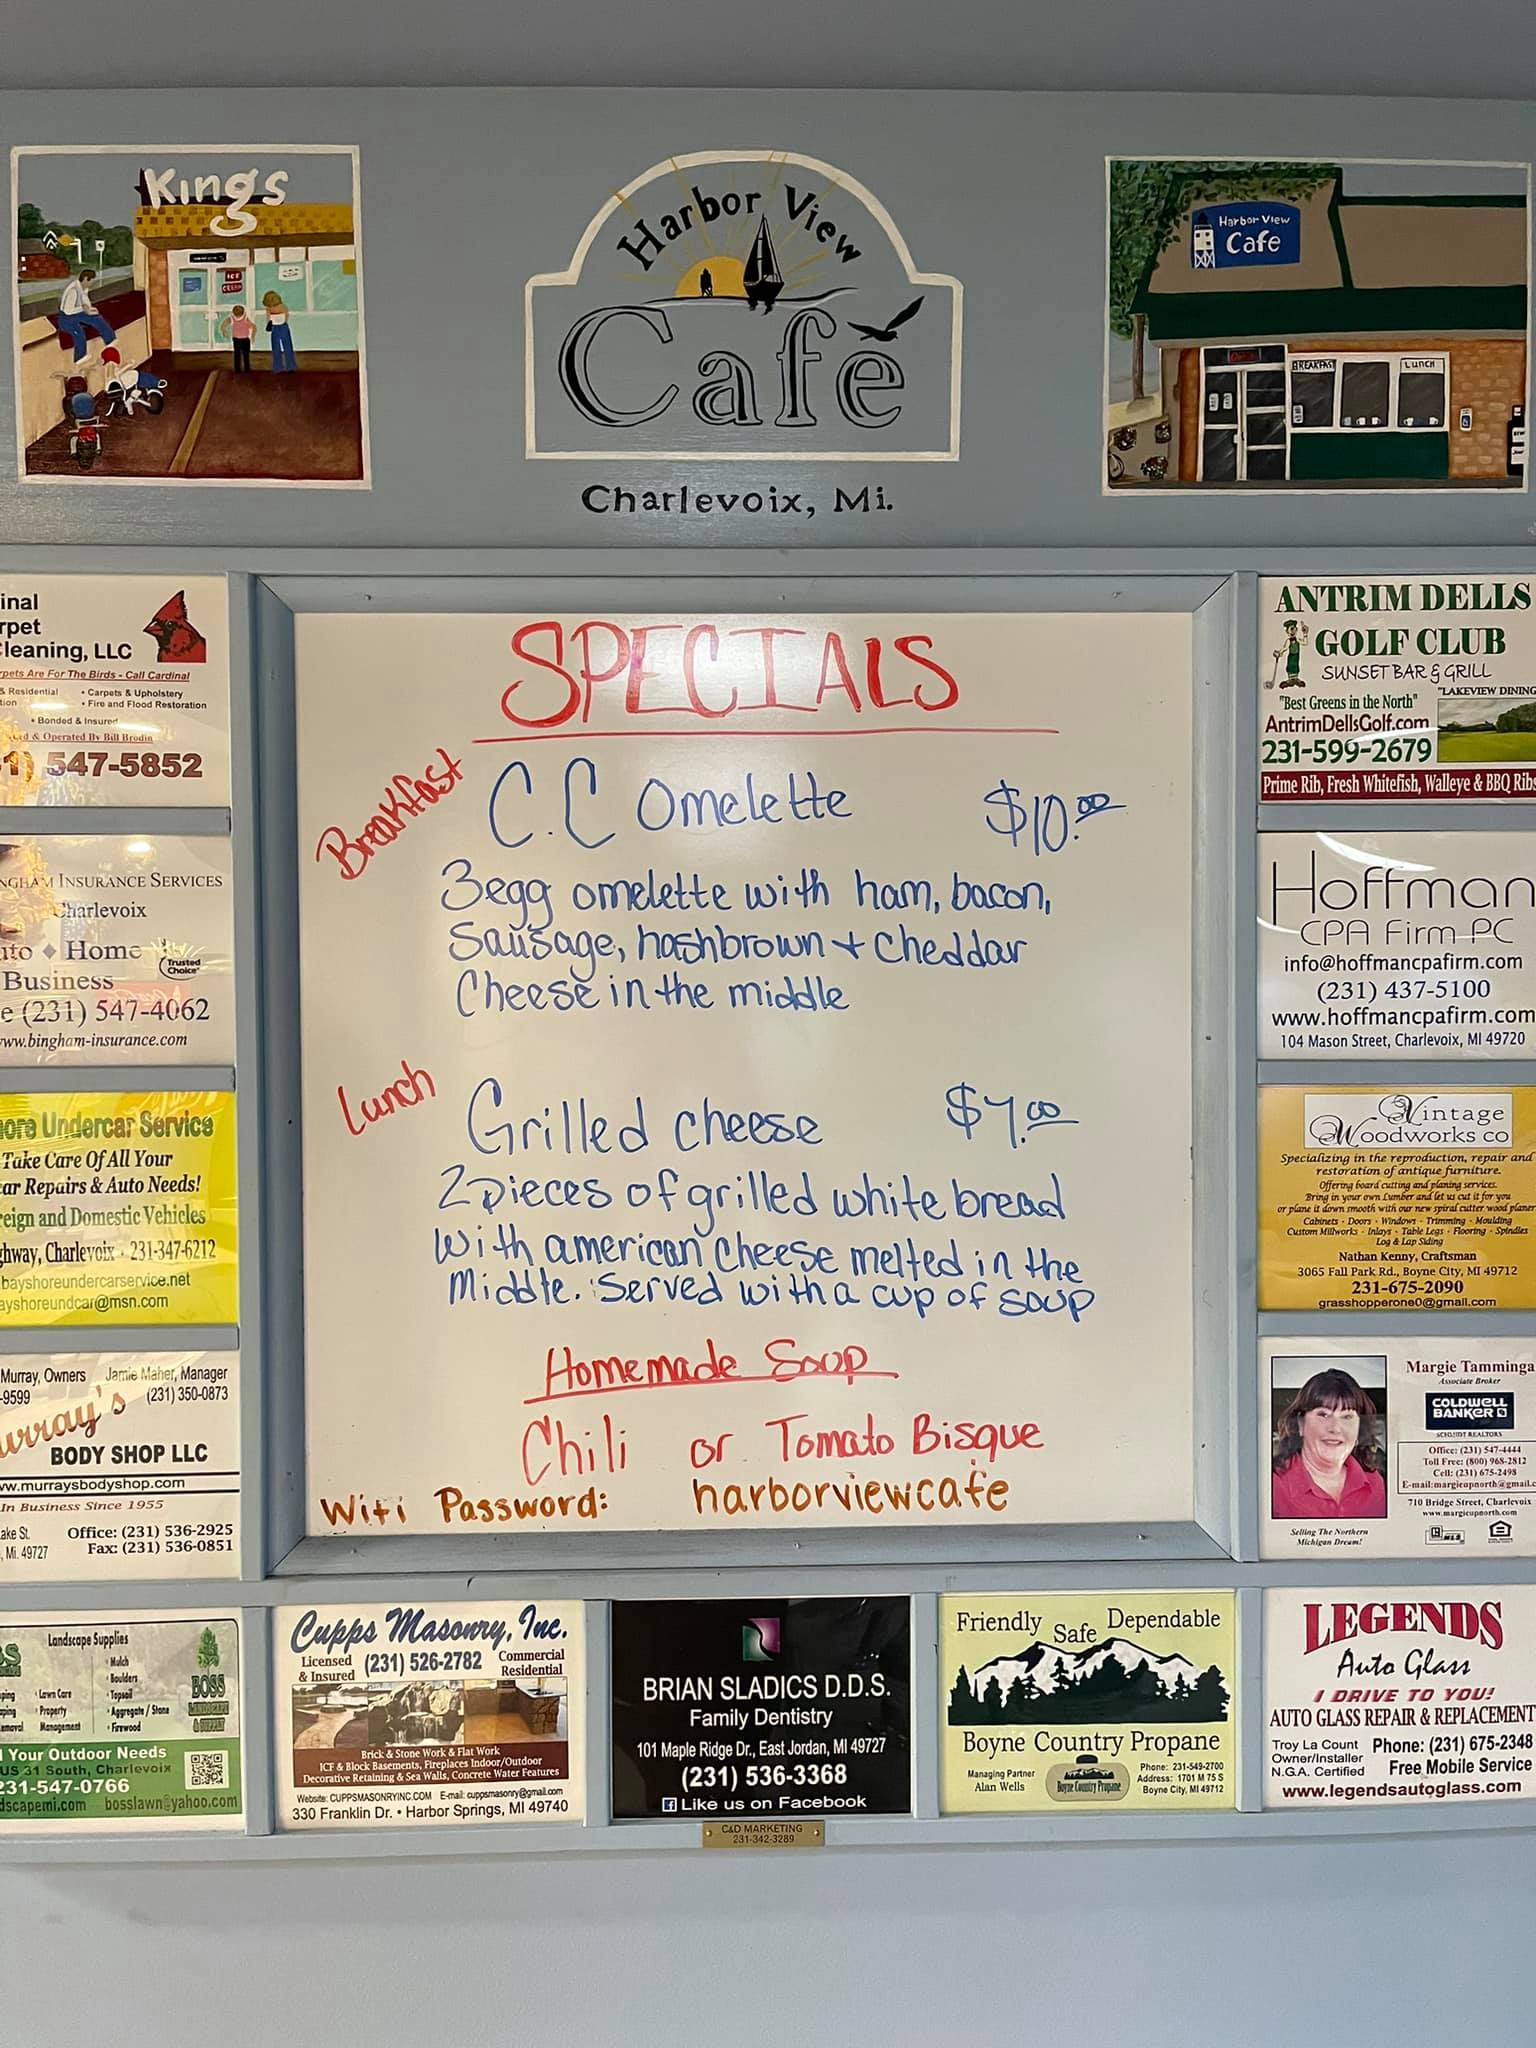 Kings
ICE
CREAM
Harbor View
Café
Charlevoix, Mi.
Harbor View
Cafe
BREAKFAST
LUNCH
SPECIALS
Breakfast
C.C Omelette $10.00
3egg omelette with ham, bacon,
Sausage, hashbrown + cheddar
Cheese in the middle
Lunch
Grilled cheese $7.00
2 pieces of grilled white bread
with american cheese melted in the
Middle. Served with a cup of soup
Homemade Soup
Chili or Tomato Bisque
Wifi Password: harborviewcafe
inal
rpet
Cleaning, LLC
rpets Are For The Birds - Call Cardinal
& Residential
tion
• Carpets & Upholstery
• Fire and Flood Restoration
• Bonded & Insured
& Operated By Bill Brodin
1) 547-5852
NGHAM INSURANCE SERVICES
Charlevoix
uto ♦ Home
Business
Trusted
Choice
e (231) 547-4062
www.bingham-insurance.com
ore Undercar Service
Take Care Of All Your
ar Repairs & Auto Needs!
reign and Domestic Vehicles
ghway, Charlevoix · 231-347-6212
bayshoreundercarservice.net
ayshoreundcar@msn.com
Murray, Owners Jamie Maher, Manager
-9599 (231) 350-0873
urray's
BODY SHOP LLC
w.murraysbodyshop.com
In Business Since 1955
ake St.
, Mi. 49727
Office: (231) 536-2925
Fax: (231) 536-0851
ANTRIM DELLS
GOLF CLUB
SUNSET BAR & GRILL
"Best Greens in the North"
"LAKEVIEW DINING
AntrimDellsGolf.com
231-599-2679
Prime Rib, Fresh Whitefish, Walleye & BBQ Ribs
Hoffman
CPA Firm PC
info@hoffmancpafirm.com
(231) 437-5100
www.hoffmancpafirm.com
104 Mason Street, Charlevoix, MI 49720
Vintage
Woodworks co
Specializing in the reproduction, repair and
restoration of antique furniture.
Offering board cutting and planing services.
Bring in your own Lumber and let us cut it for you
or plane it down smooth with our new spiral cutter wood planer
Cabinets - Doors - Windows - Trimming - Moulding
Custom Millworks - Inlays - Table Legs - Flooring - Spindles
Log & Lap Siding
Nathan Kenny, Craftsman
3065 Fall Park Rd., Boyne City, MI 49712
231-675-2090
grasshopperone0@gmail.com
Margie Tamminga
Associate Broker
COLDWELL
BANKER
SCHMIDT REALTORS
Office: (231) 547-4444
Toll Free: (800) 968-2812
Cell: (231) 675-2498
E-mail:margieupnorth@gmail.c
710 Bridge Street, Charlevoix
www.margieupnorth.com
Selling The Northern
Michigan Dream!
MLS
Landscape Supplies
• Mulch
• Boulders
• Topsoil
• Aggregate / Stone
• Firewood
• Lawn Care
• Property
Management
ping
aping
emoval
BOSS
LANDSCAPE
& SUPPLY
l Your Outdoor Needs
US 31 South, Charlevoix
231-547-0766
dscapemi.com bosslawn@yahoo.com
Cupps Masonry, Inc.
Licensed
& Insured
(231) 526-2782
Commercial
Residential
Brick & Stone Work & Flat Work
ICF & Block Basements, Fireplaces Indoor/Outdoor
Decorative Retaining & Sea Walls, Concrete Water Features
Website: CUPPSMASONRYINC.COM E-mail: cuppsmasonry@gmail.com
330 Franklin Dr. • Harbor Springs, MI 49740
BRIAN SLADICS D.D.S.
Family Dentistry
101 Maple Ridge Dr., East Jordan, MI 49727
(231) 536-3368
f Like us on Facebook
C&D MARKETING
231-342-3289
Friendly Safe Dependable
Boyne Country Propane
Managing Partner
Alan Wells
Boyne Country Propane
Phone: 231-549-2700
Address: 1701 M 75 S
Boyne City, MI 49712
LEGENDS
Auto Glass
I DRIVE TO YOU!
AUTO GLASS REPAIR & REPLACEMENT
Troy La Count
Owner/Installer
N.G.A. Certified
Phone: (231) 675-2348
Free Mobile Service
www.legendsautoglass.com